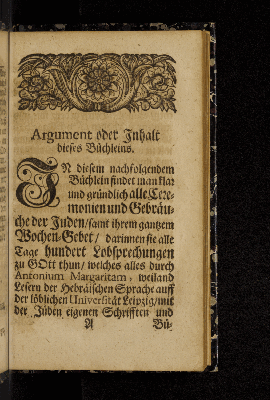 Argument oder Inhalt
dieses Büchleins.
IN diesem nachfolgendem
Büchlein findet man klar
und gründlich alle Cere-
monien und Gebräu-
che der Juden / samt ihrem gantzem
Wochen-Gebet / darinnen sie alle
Tage hundert Lobsprechungen
zu GOtt thun / welches alles durch
Antonium Margaritam, weiland
Lesern der Hebräischen Sprache auff
der löblichen Universität Leipzig / mit
der Jüden eigenen Schrifften und
A Bü-